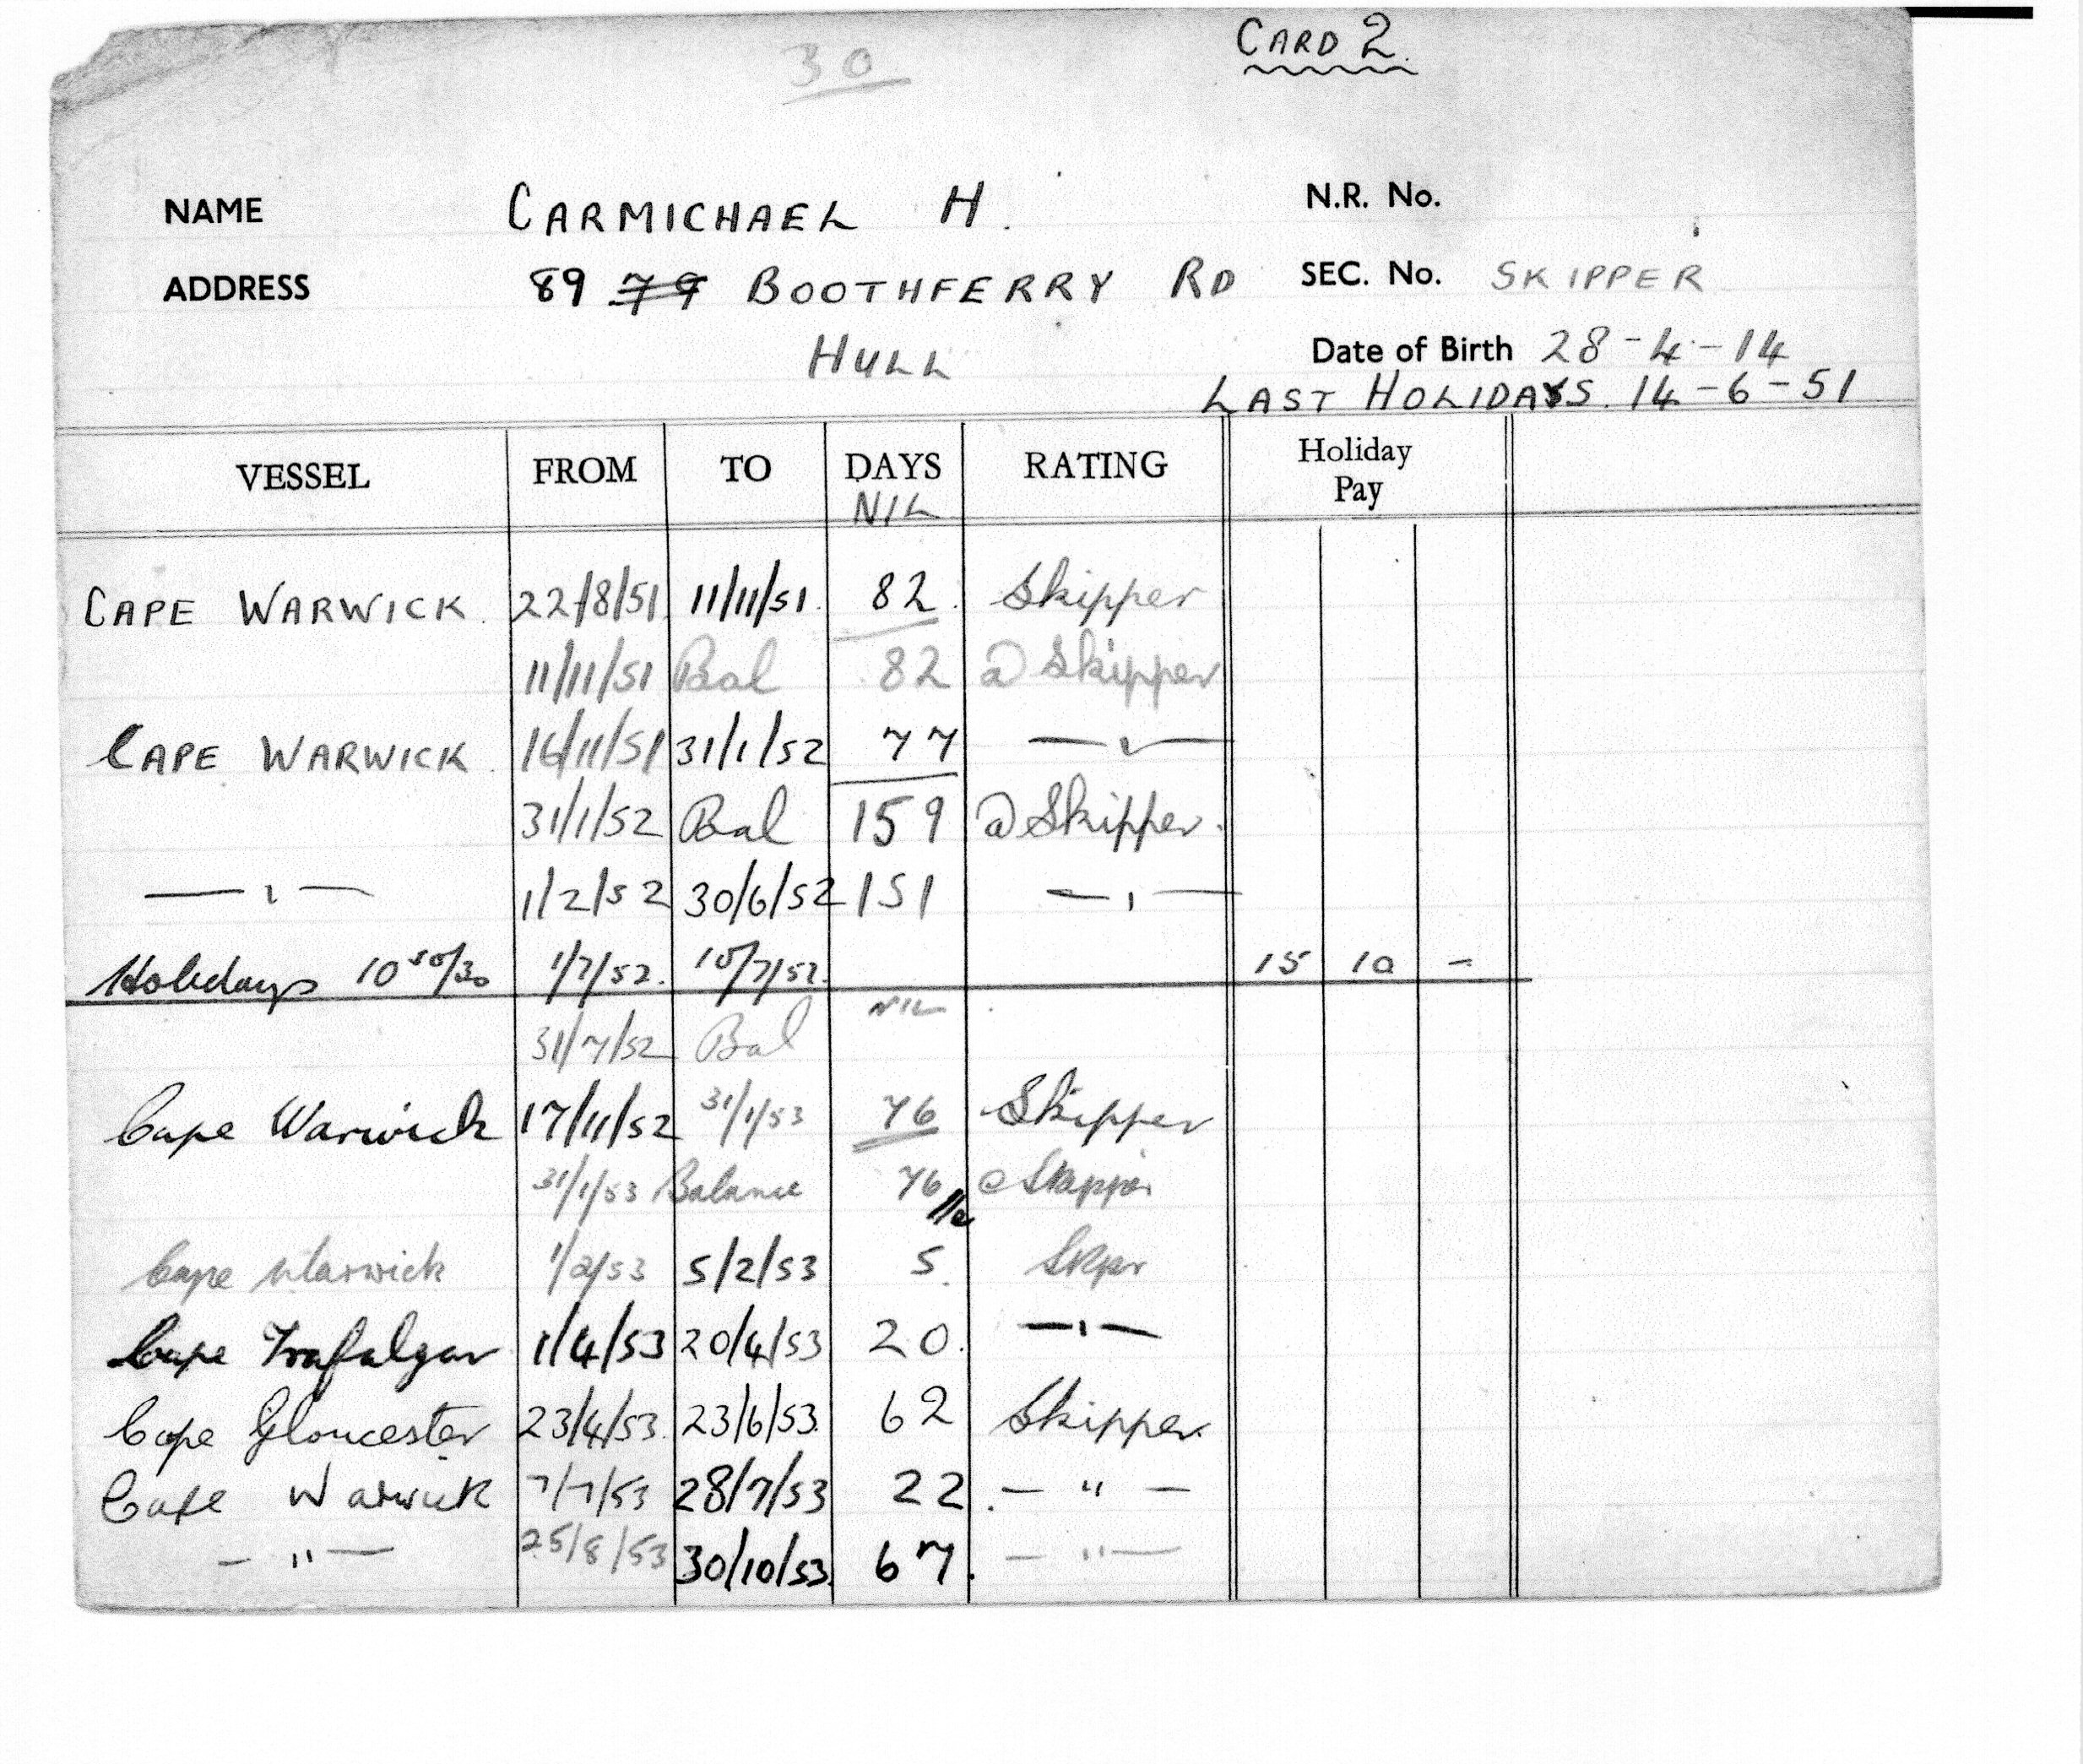 30
CARD 2.
NAME CARMICHAEL H. N.R. No.
ADDRESS 89 79 BOOTHFERRY RD SEC. No. SKIPPER
HULL Date of Birth 28-4-14
LAST HOLIDAYS. 14-6-51
VESSEL FROM TO DAYS RATING Holiday Pay
NIL
CAPE WARWICK. 22/8/51 11/11/51. 82. Skipper
11/11/51 Bal 82 @ Skipper
CAPE WARWICK. 16/11/51 31/1/52 77 — " —
31/1/52 Bal 159 @ Skipper.
— " — 1/2/52 30/6/52 151 — " —
Holidays 10 50/30 1/7/52. 10/7/52. 15 10 -
NIL
31/7/52 Bal
Cape Warwick 17/11/52 31/1/53 76 Skipper
31/1/53 Balance 76 @ Skipper
Cape Warwick 1/2/53 5/2/53 5. Skpr
Cape Trafalgar 1/4/53 20/4/53 20. — " —
Cape Gloucester 23/4/53. 23/6/53. 62 Skipper.
Cape Warwick 7/7/53 28/7/53 22. — " —
— " — 25/8/53 30/10/53. 67. — " —